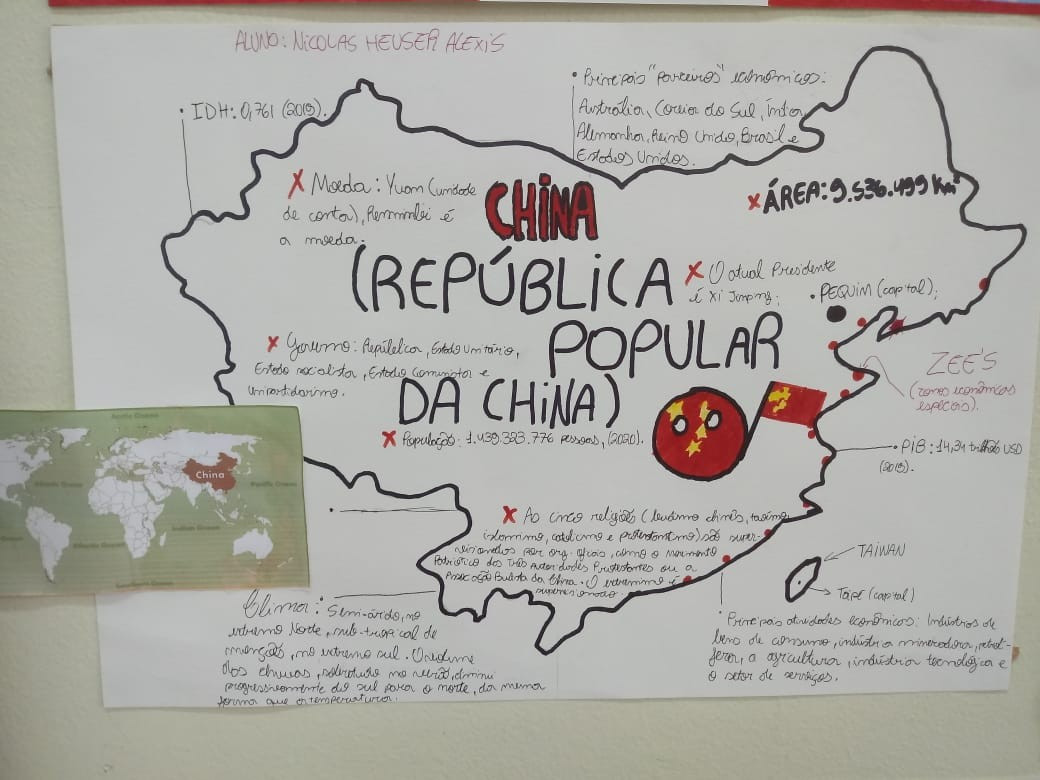 ALUNO: NICOLAS HEUSER ALEXIS
• IDH: 0,761 (2019).
• Principais "parceiros" econômicos:
Austrália, Coreia do Sul, Índia,
Alemanha, Reino Unido, Brasil e
Estados Unidos.
X Moeda: Yuan (unidade
de conta), Renminbi é
a moeda.
CHINA
(REPÚBLICA
POPULAR
DA CHINA)
X ÁREA: 9.536.499 Km²
X O atual Presidente
é Xi Jinping;
• PEQUIM (capital);
X Governo: República, Estado Unitário,
Estado socialista, Estado Comunista e
Unipartidarismo.
ZEE'S
(zonas econômicas
especiais).
X População: 1.439.323.776 pessoas, (2020).
• PIB: 14,34 trilhão USD
(2019).
Arctic Ocean
China
Atlantic Ocean
Pacific Ocean
Indian Ocean
Atlantic Ocean
Southern Ocean
X As cinco religiões (budismo chinês, taoismo,
islamismo, catolicismo e protestantismo) são super-
visionados por org. oficiais, como o Movimento
Patriótico das Três Autoridades Protestantes ou a
Associação Budista da China. O extremismo é
supervisionado.
TAIWAN
TAIPÉ (capital)
Clima: Semi-árido, no
extremo Norte, sub-tropical de
monção, no extremo sul. O volume
das chuvas, sobretudo no verão, diminui
progressivamente do sul para o norte, da mesma
forma que as temperaturas.
• Principais atividades econômicas: Indústrias de
bens de consumo, indústria mineradora, petrol-
ífera, a agricultura, indústria tecnológica e
o setor de serviços.